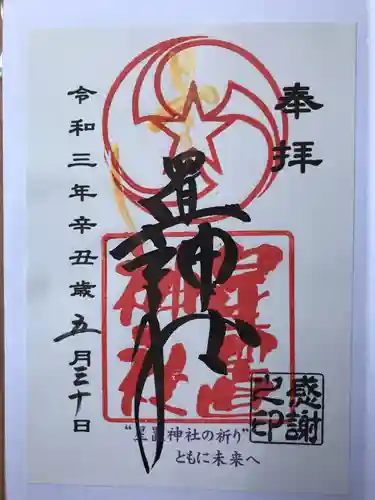 奉拝
星置神社
星置神社
令和三年辛丑歳五月三十日
感謝之印
"星置神社の祈り"
ともに未来へ